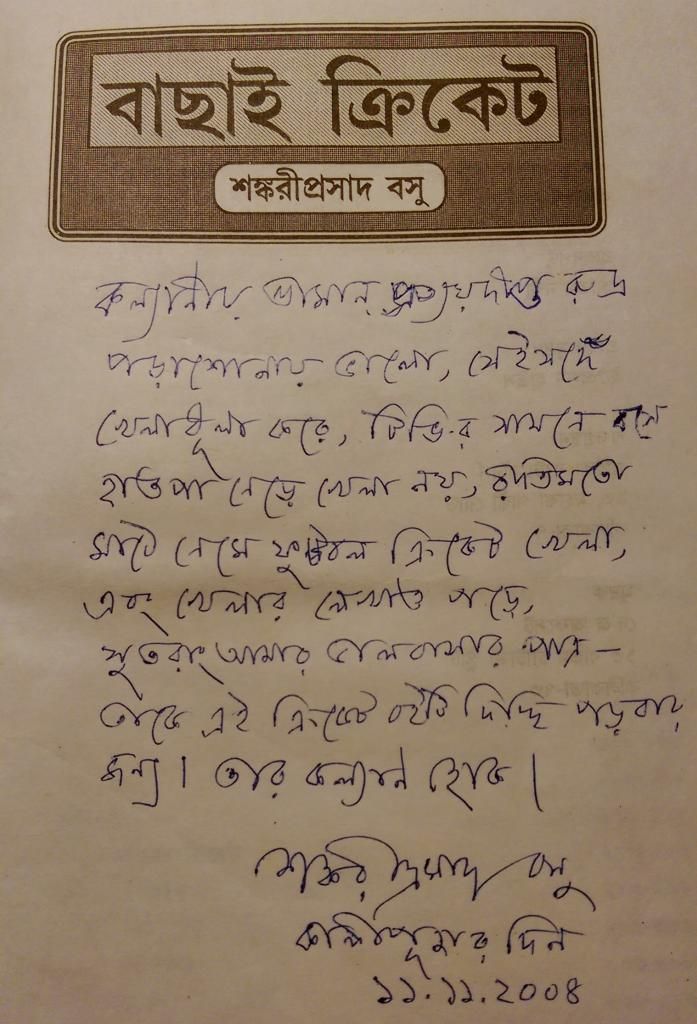 বাছাই ক্রিকেট
শঙ্করীপ্রসাদ বসু
কল্যানীয় শ্রীমান প্রত্যয়দীপ্ত রুদ্র
পড়াশোনায় ভালো, সেইসঙ্গে
খেলাধূলা করে, টিভি-র সামনে বসে
হাতপা নেড়ে খেলা নয়, রীতিমতো
মাঠে নেমে ফুটবল ক্রিকেট খেলা,
এবং খেলার লেখাও পড়ে,
সুতরাং আমার ভালবাসার পাত্র –
তাঁকে এই ক্রিকেট বইটি দিচ্ছি পড়বার
জন্য। তার কল্যাণ হোক।
শঙ্করীপ্রসাদ বসু
কালীপূজার দিন
১১.১১.২০০৪